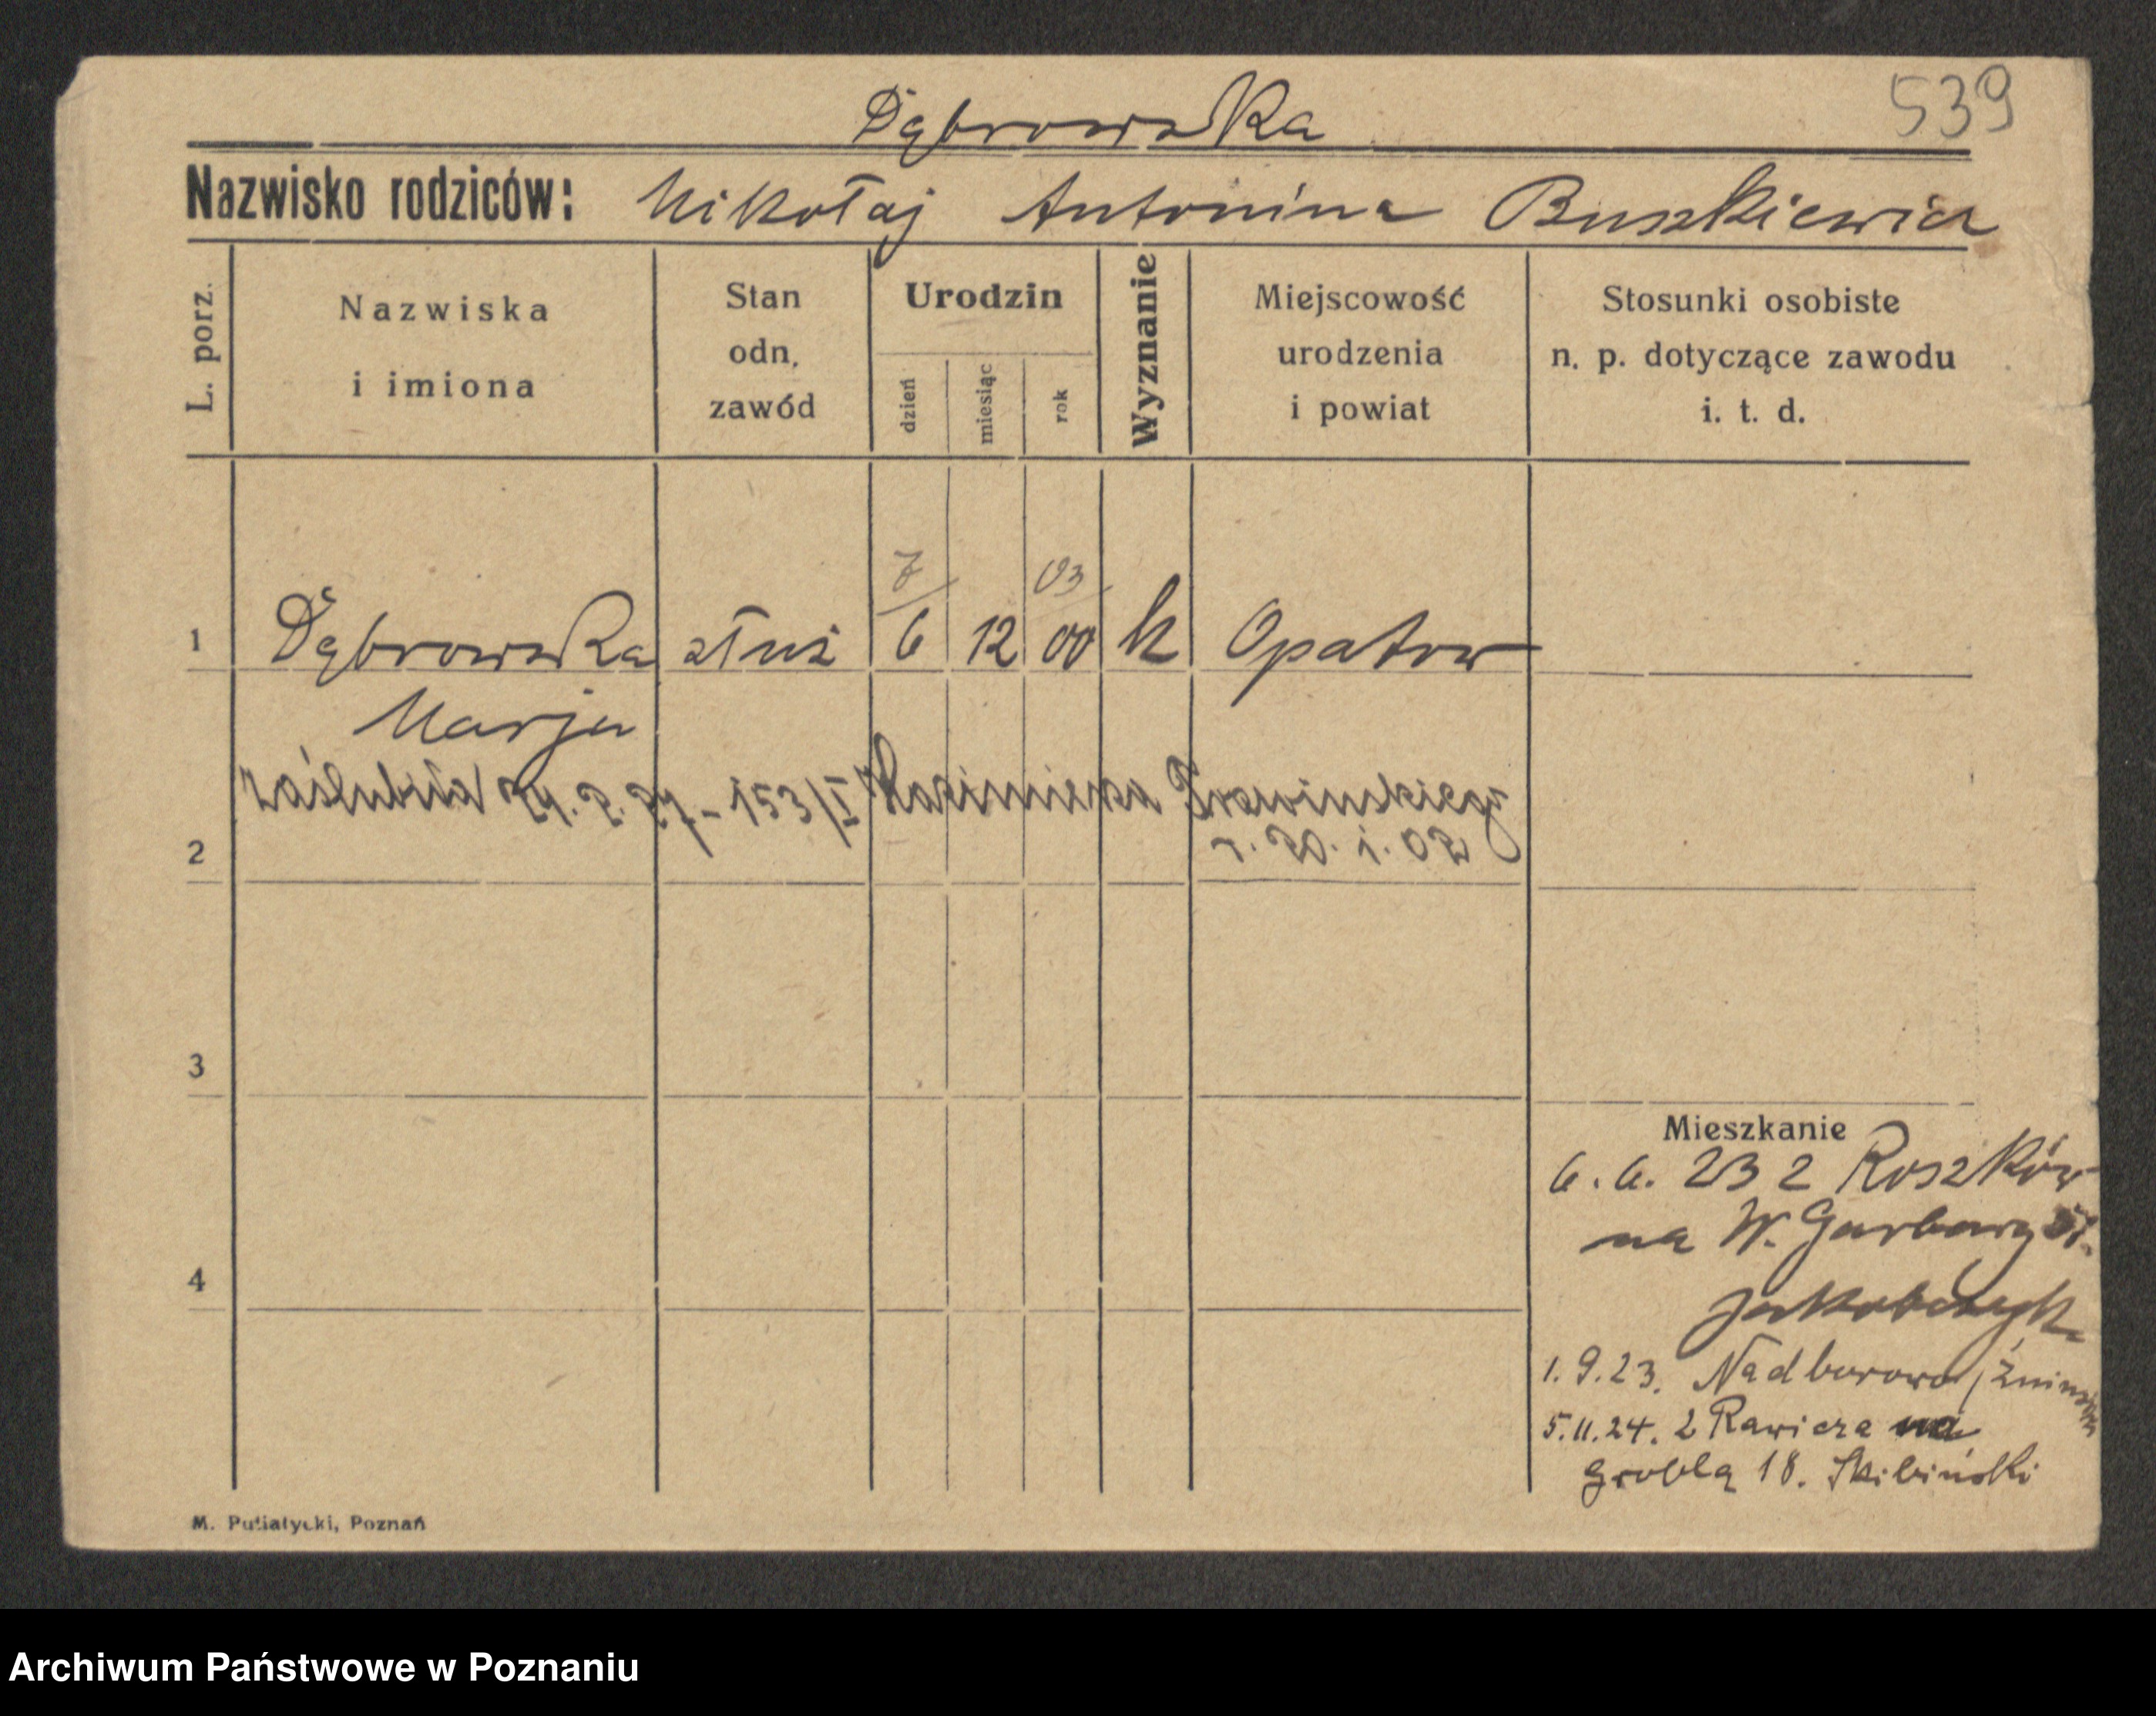 539
Dąbrowska
Nazwisko rodziców: Mikołaj Antonina Buszkiewicz
L. porz.
Nazwiska
i imiona
Stan
odn.
zawód
Urodzin
dzień
miesiąc
rok
Wyznanie
Miejscowość
urodzenia
i powiat
Stosunki osobiste
n. p. dotyczące zawodu
i. t. d.
7 03
1 Dąbrowska służ 6 12 00 k Opatow
Marja
zaślubiła 24.2.27 - 153/I Kazimierza
r. 20. 1. 02
2
3
4
Mieszkanie
6. 6. 23 z Roszków
na W. Garbary
Jakobczyk
1. 9. 23. Nadborowo /Żnin
5. 11. 24. z Rawicza na
groblą 18. Skibiński
M. Putiatycki, Poznań
Archiwum Państwowe w Poznaniu